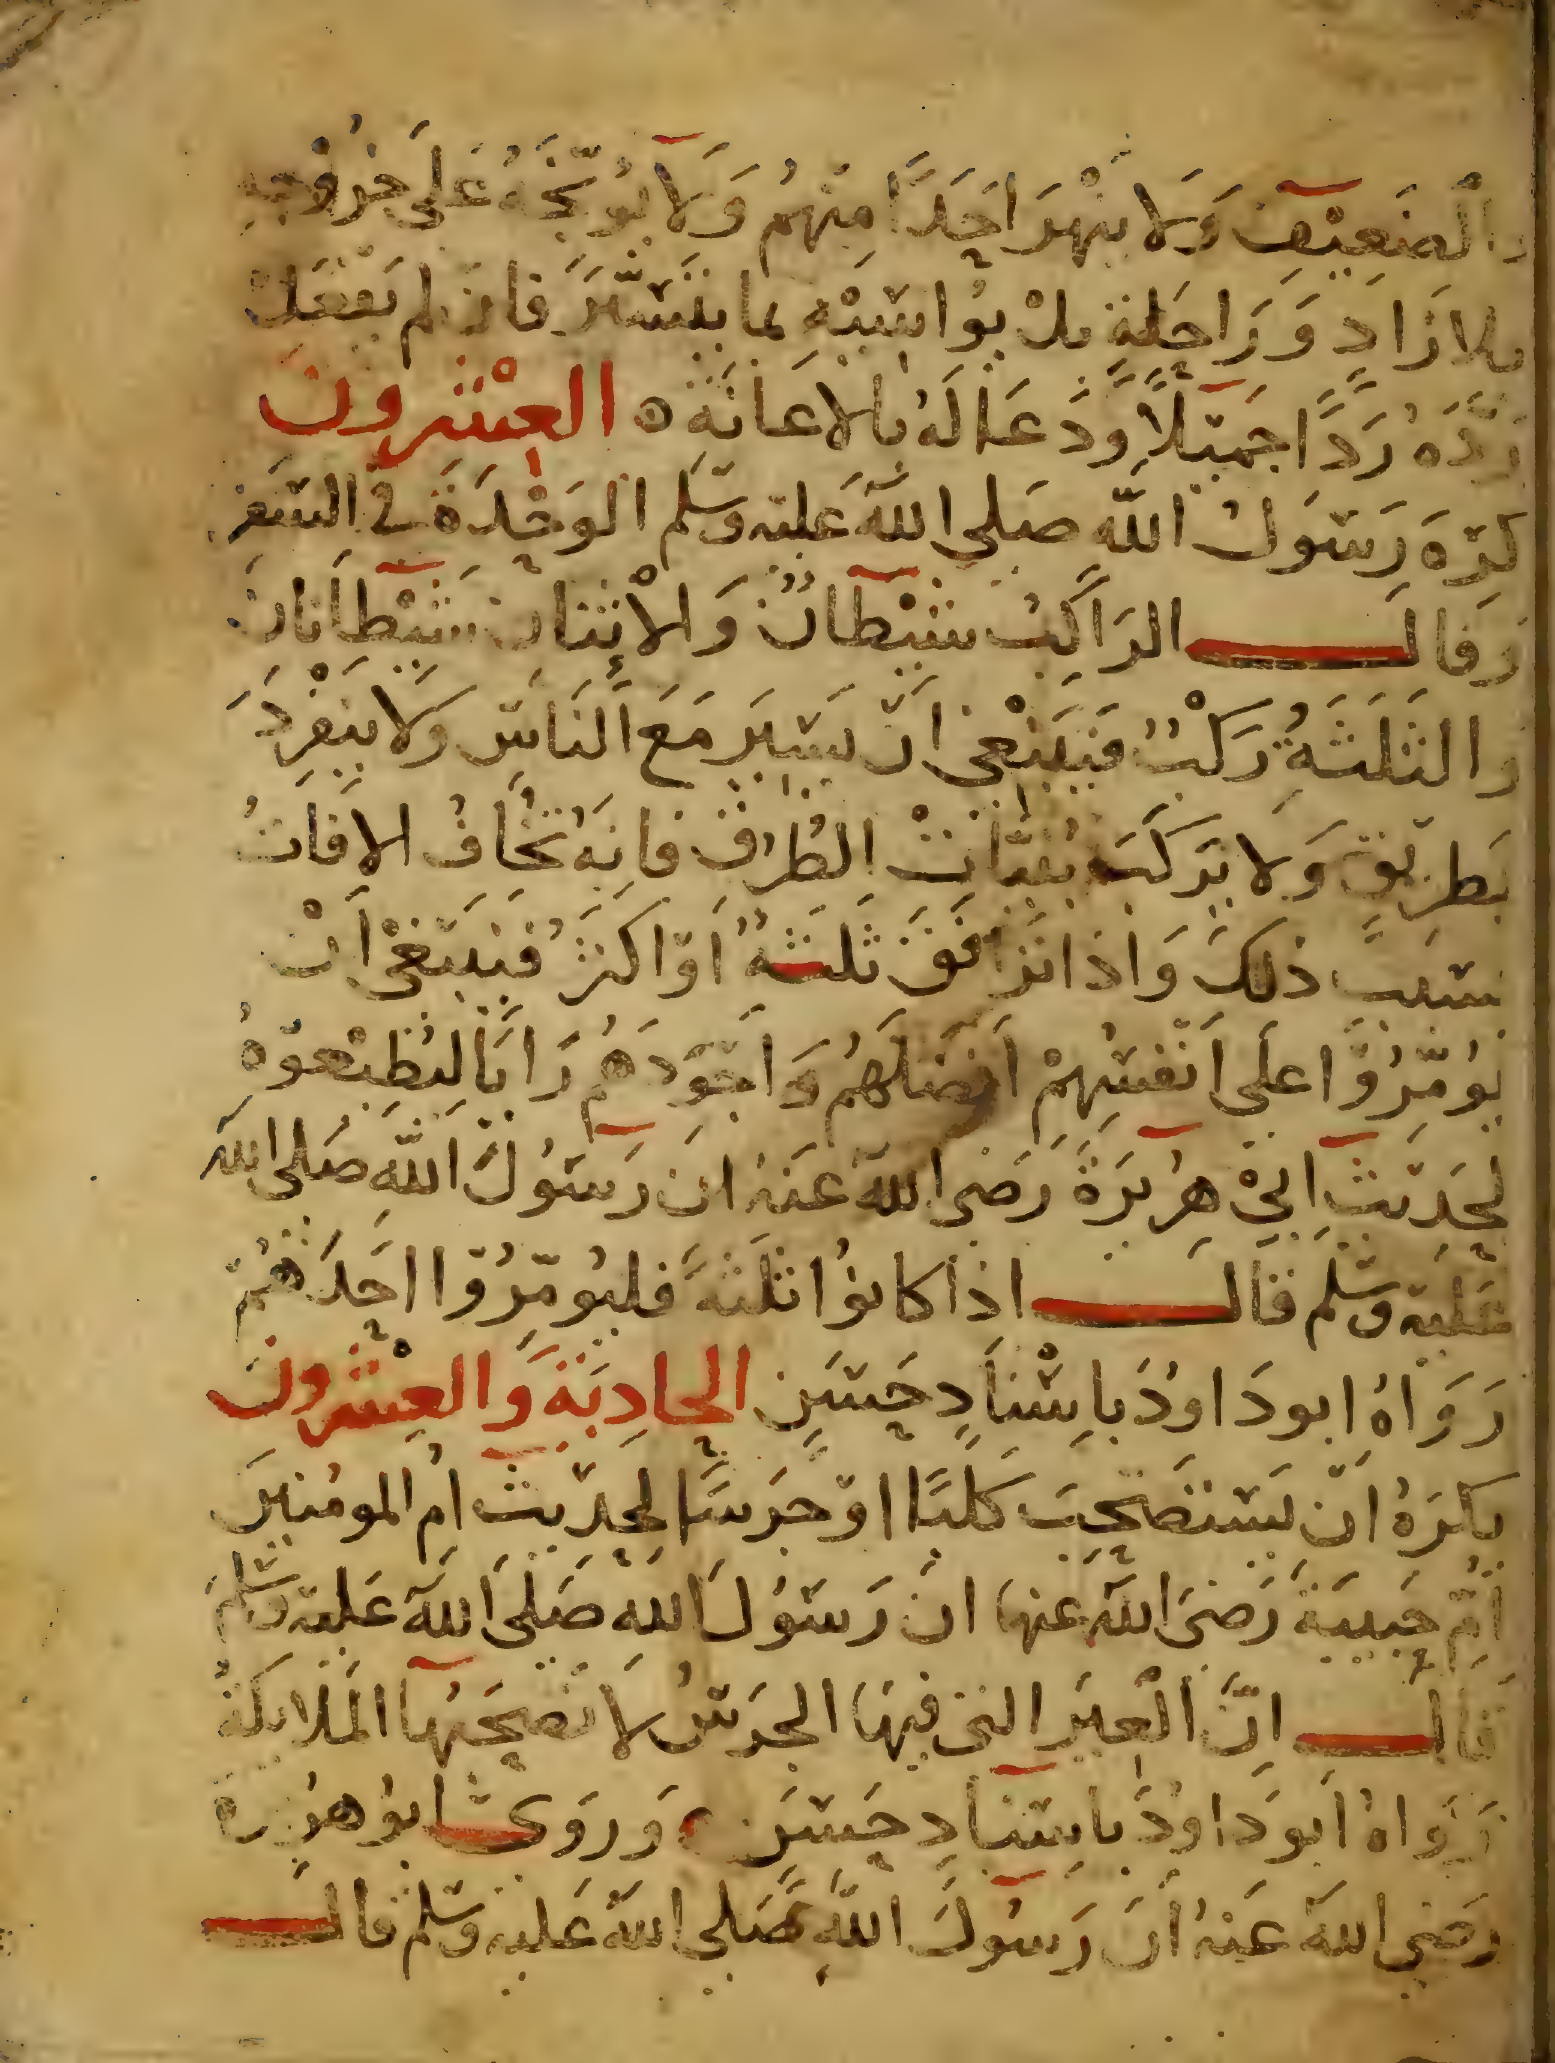 والضَعِيْفِ وَلا ينْهَرَ اَحَدًا مِنْهُمْ وَلَا يُوَبّخَهُ عَلَى خرُوْجِهِ
بلا زَادٍ وَرَاحِلَةٍ بلْ يُوَاسِيْهِ بما يتَيَسَّرَ فان لم يَفْعَلْ
رَدَّهُ رَدًّا جَميْلًا وَدَعَا لهُ بالاعَانَةِ ه العِشرُونَ
كرِهَ رَسُوَلُ اللّهِ صَلى اللهُ عَليه وسَلم الوَحْدَةَ في السَفرِ
وَقالَ الرَاكِبُ شيْطَانٌ وَالاْثنانِ شَيْطَانانِ
والثَلَثَةُ رَكْبٌ فيَنبَغي انْ يَسِيَر مَعَ النَاسِ وَلا ينفرِدَ
بطرِيْقٍ وَلا يَركَبَ بُنَيَّاتْ الطُرُقِ فانهُ تخَافُ الافاتُ
بسَبب ذلكَ وَاذا تَرَافَقَ ثلَثَةٌ اَوْ اكثرُ فينبَغيْ أنْ
يُؤمّرُوْا علَى اَنْفُسِهِمْ اَفضَلَهُمْ وَاَجْوَدَهُم رَايًا ليُطِيْعوْهُ
لحَدِيْثِ ابيْ هرُيرَةَ رَضيَ اللهُ عَنهُ انَ رَسُوْلَ اللّهِ صَلى الله
عَلَيْهِ وسَلم قَالَ اذا كانوْا ثلثةَ فليُومّرُوْا احَدَهُمْ
رَوَاهُ ابودَاوُدَ باِسْنَادٍ حَسَنٍ الحادِيَةُ وَالعِشْرُونَ
يكرَهُ انْ يَسْتَصْحِبَ كَلبًا اوْ جَرسًا لحدِيْثِ امِ المومنينَ
اُمِّ حَبيبَةَ رَضيَ اللهُ عنها انَ رَسُوْلَ الله صَلَى اللهُ عَليه وسَلمَ
قَالَ اِنَّ الْعِيرَ التي فيهَا الجرَسُ لا تصْحَبُهَا المَلايكَةُ
رَوَاهُ اَبو دَاوُدَ باسْنَادٍ حَسَنٍ وَروَىَ ابوُ هرُيرة
رضيَ اللهُ عَنهُ أنَ رَسُولَ اللّهِ صَلى اللهُ عَليه وسَلم قالَ